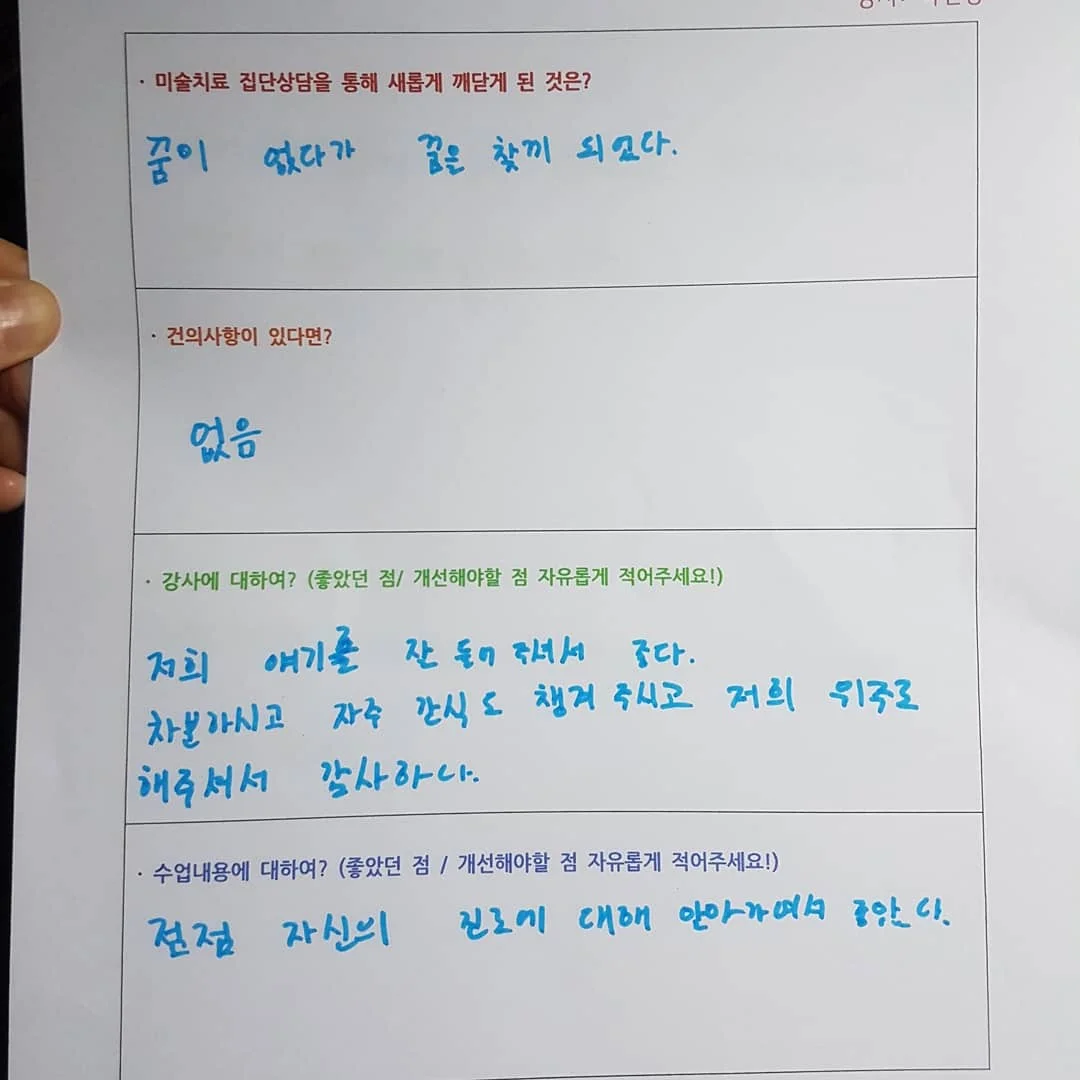 · 미술치료 집단상담을 통해 새롭게 깨닫게 된 것은?
꿈이 없다가 꿈은 찾끼 되었다.
· 건의사항이 있다면?
없음
· 강사에 대하여? (좋았던 점/ 개선해야할 점 자유롭게 적어주세요!)
저희 얘기를 잘 들어 주셔서 좋다.
차분하시고 자주 간식도 챙겨 주시고 저희 위주로
해주셔서 감사하다.
· 수업내용에 대하여? (좋았던 점 / 개선해야할 점 자유롭게 적어주세요!)
점점 자신의 진로에 대해 알아가며서 좋았다.